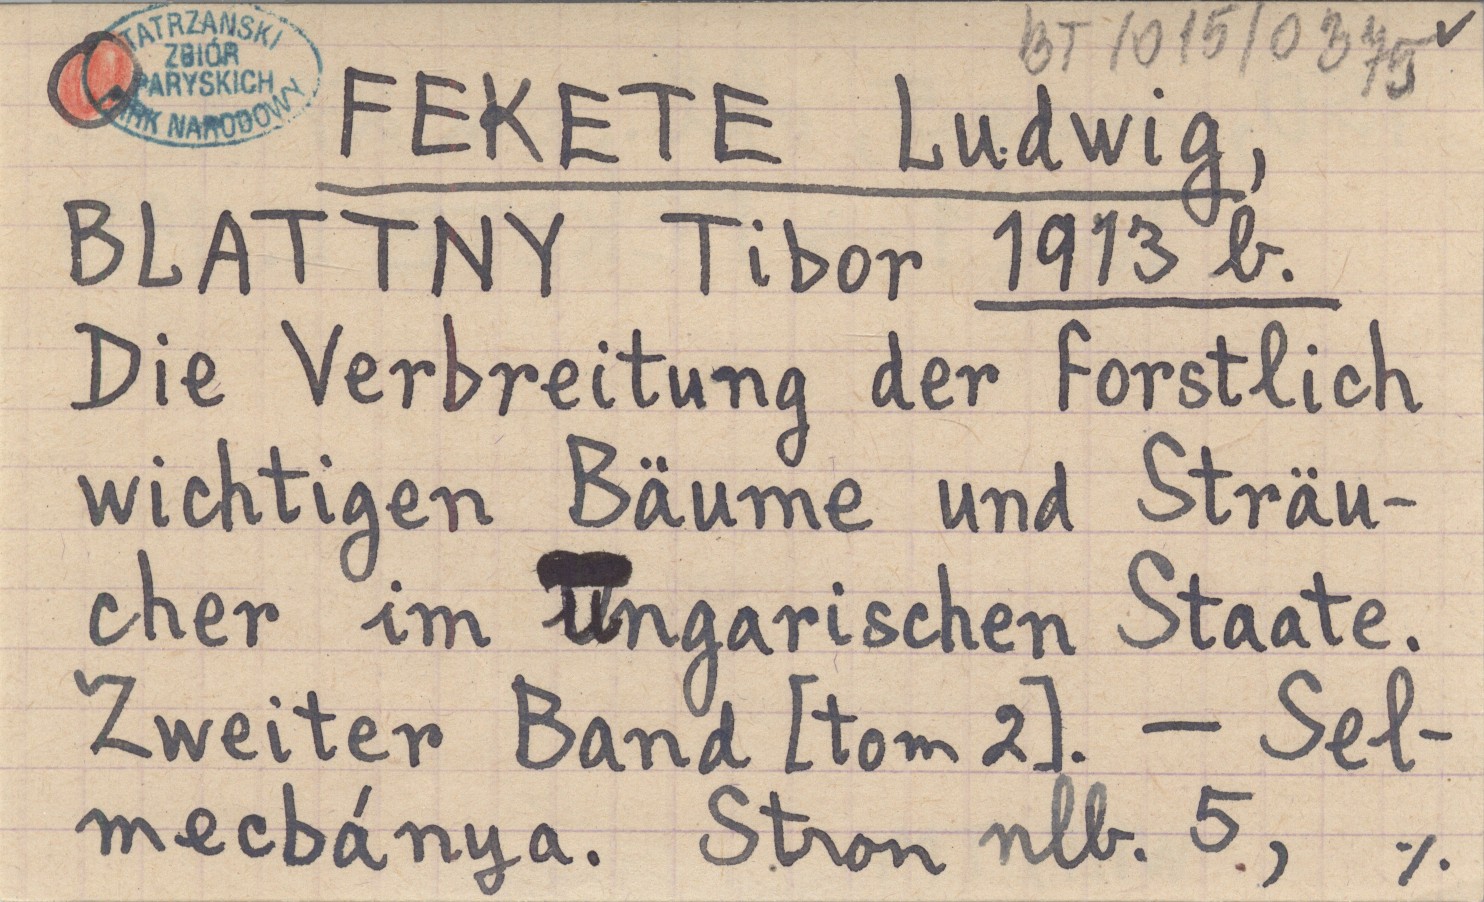 TATRZAŃSKI
ZBIÓR
PARYSKICH
PARK NARODOWY
BT/015/0375
FEKETE Ludwig,
BLATTNY Tibor 1913 b.
Die Verbreitung der forstlich
wichtigen Bäume und Sträu-
cher im ungarischen Staate.
Zweiter Band [tom 2]. — Sel-
mecbánya. Stron nlb. 5, ·/.